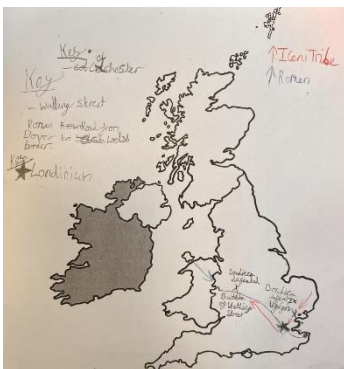 Key • of
Colchester
Key
- Watling Street
Roman Road from
Dover to Welsh
border.
Key
Londinium
↑ Iceni Tribe
↑ Roman
Boudicca
defeated
X
Battle
of Watling
Street
Boudicca